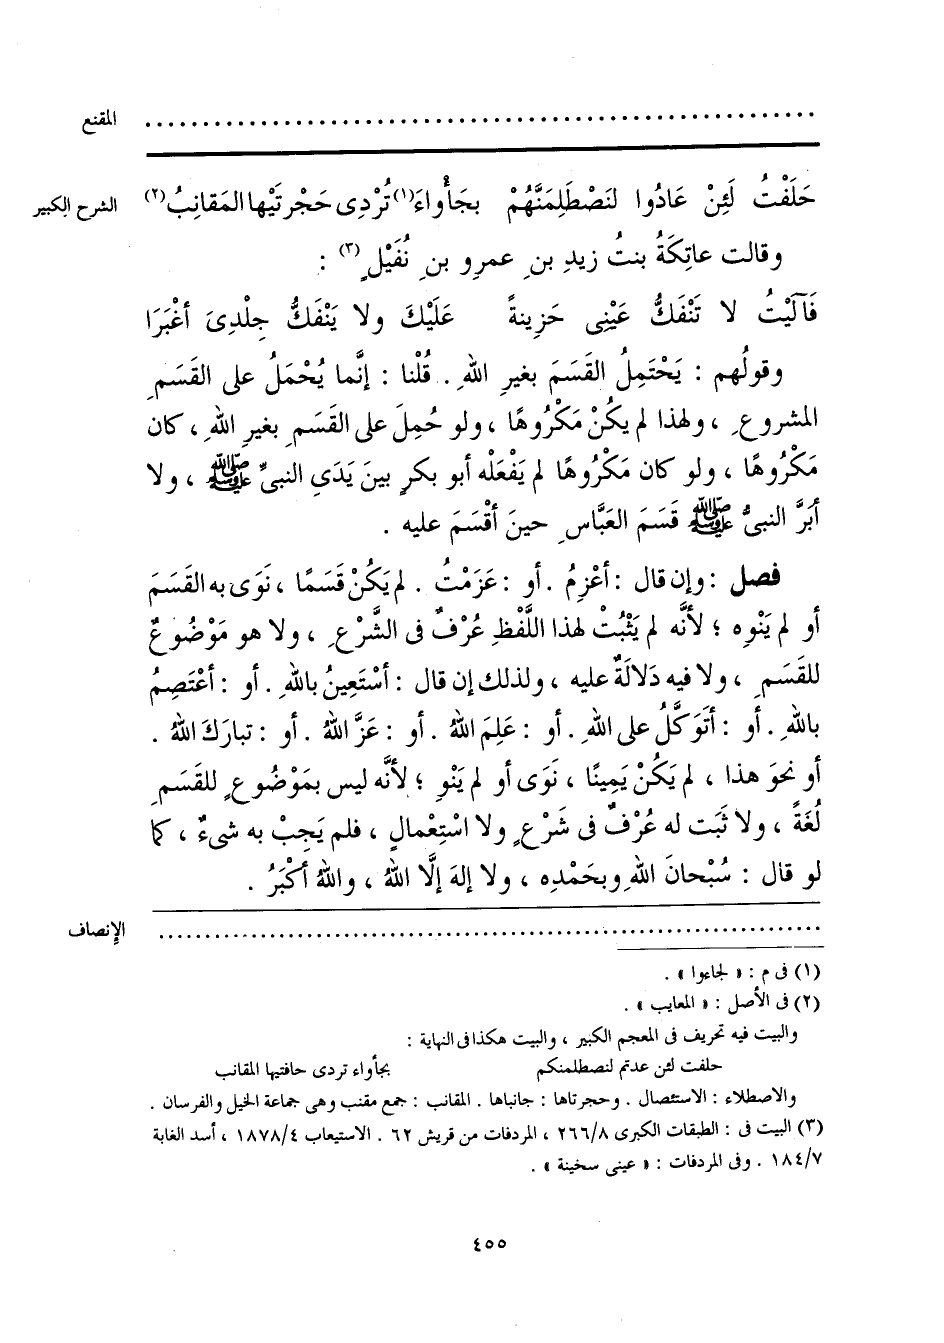 المقنع ............................................................
الشرح الكبير
حَلَفْتُ لَئِنْ عَادُوا لنَصْطَلِمَنَّهُمْ بجَأْواءَ(١) تُرْدِى حَجْرتَيْها المَقانِبُ(٢)
وقالت عاتِكَةُ بنتُ زيدِ بنِ عمرِو بنِ نُفَيْلٍ(٣) :
فَآلَيْتُ لا تَنْفَكُّ عَيْنِى حَزِينةً عَلَيْكَ ولا يَنْفَكُّ جِلْدِىَ أغْبَرَا
وقولُهم : يَحْتَمِلُ القَسَمَ بغيرِ اللهِ . قُلْنا : إنَّما يُحْمَلُ على القَسَمِ
المشروعِ ، ولهذا لم يكُنْ مَكْرُوهًا ، ولو حُمِلَ على القَسَمِ بغيرِ اللهِ ، كان
مَكْرُوهًا ، ولو كان مَكْرُوهًا لم يَفْعَلْه أبو بكرٍ بينَ يَدَىِ النبىِّ ﷺ ، ولا
أبَرَّ النبىُّ ﷺ قَسَمَ العَبَّاسِ حينَ أقْسَمَ عليه .
فصل : وإن قال : أعْزِمُ . أو : عَزَمْتُ . لم يَكُنْ قَسَمًا ، نَوَى به القَسَمَ
أو لم يَنْوِه ؛ لأنَّه لم يَثْبُتْ لهذا اللَّفْظِ عُرْفٌ فى الشَّرْعِ ، ولا هو مَوْضُوعٌ
للقَسَمِ ، ولا فيه دَلالَةٌ عليه ، ولذلك إن قال : أسْتَعِينُ باللهِ . أو : أعْتَصِمُ
باللهِ . أو : أتَوَكَّلُ على اللهِ . أو : عَلِمَ اللهُ . أو : عَزَّ اللهُ . أو : تبارَكَ اللهُ .
أو نحوَ هذا ، لم يَكُنْ يَمِينًا ، نَوَى أو لم يَنْوِ ؛ لأنَّه ليس بمَوْضُوعٍ للقَسَمِ
لُغَةً ، ولا ثَبَت له عُرْفٌ فى شَرْعٍ ولا اسْتِعْمالٍ ، فلم يَجِبْ به شىءٌ ، كما
لو قال : سُبْحانَ اللهِ وبحَمْدِه ، ولا إلهَ إلَّا اللهُ ، واللهُ أكْبَرُ .
الإنصاف ............................................................
(١) فى م : « لجاءوا » .
(٢) فى الأصل : « المعايب » .
والبيت فيه تحريف فى المعجم الكبير ، والبيت هكذا فى النهاية :
حلفت لئن عدتم لنصطلمنكم بجأواء تردى حافتيها المقانب
والاصطلاء : الاستئصال . وحجرتاها : جانباها . المقانب : جمع مقنب وهى جماعة الخيل والفرسان .
(٣) البيت فى : الطبقات الكبرى ٢٦٦/٨ ، المردفات من قريش ٦٢ . الاستيعاب ١٨٧٨/٤ ، أسد الغابة
١٨٤/٧ . وفى المردفات : « عينى سخينة » .
٤٥٥